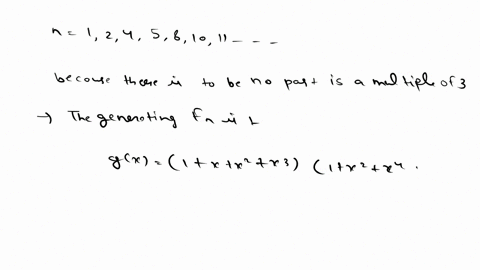 n = 1, 2, 4, 5, 8, 10, 11 - - - -
because there is to be no part is a multiple of 3
→ The generating fn is
g(x) = (1 + x + x² + x3) (1 + x² + x⁴ .